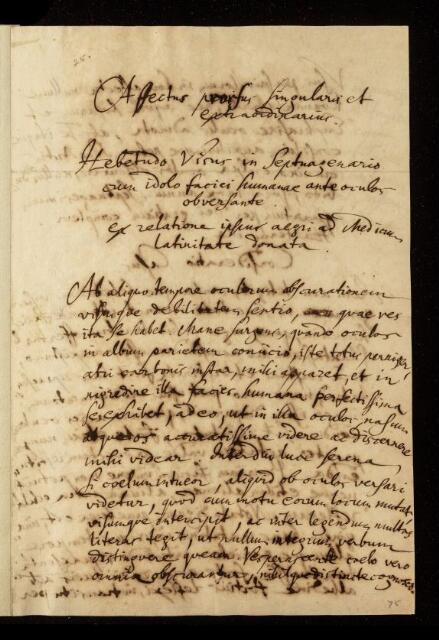 Affectus prorsus singularis et
extraordinarius.
Hebetudo Visus in Septuagenario
cum idolo faciei humanae ante oculos
obversante.
ex relatione ipsius aegri ad Medicum
latinitate donata.
Ab aliquo tempore oculorum obscurationem
visusque debilitatem sentio, quae res
ita se habet. Mane surgens, quando oculos
in album parietem conjicio, iste totus perniger
atri carbonis instar, mihi apparet, et in
nigredine illa facies humana perfectissima
se exhibet, adeo, ut in illa oculos, nasum
atque os accuratissime videre ac discernere
mihi videar. Interdiu luce serena,
si coelum intueor, aliquid ob oculos versari
videtur, quod cum motu eorum locum mutat
visumque intercipit, ac inter legendum multas
literas tegit, ut nullum integrum verbum
distinguere queam. Vesperascente coelo vero
omnia obscurantur, nihilque distincte cognosco.
75